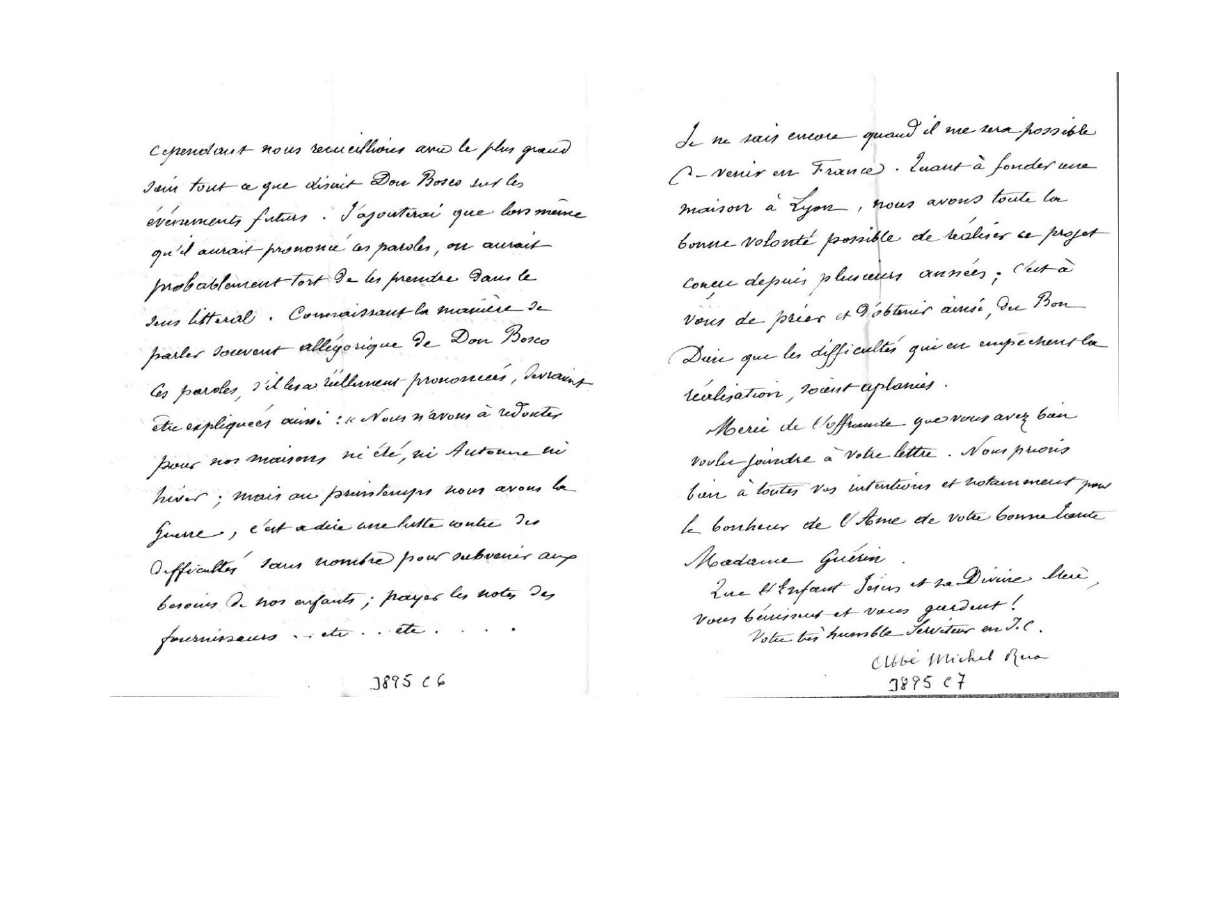 cependant nous recueillions avec le plus grand
soin tout ce que disait Don Bosco sur les
événements futurs. J'ajouterai que lors même
qu'il aurait prononcé ces paroles, on aurait
probablement tort de les prendre dans le
sens litteral. Connaissant la manière de
parler souvent allégorique de Don Bosco
ces paroles, s'il les a réellement prononcées, devraient
être expliquées ainsi : « Nous n'avons à redouter
pour nos maisons ni été, ni Automne ni
hiver ; mais au printemps nous avons la
Guerre, c'est a dire une lutte contre des
difficultés sans nombre pour subvenir aux
besoins de nos enfants ; payer les notes des
fournisseurs ... etc ... etc . . . .
J895 C6
Je ne sais encore quand il me sera possible
de venir en France. Quant à fonder une
maison à Lyon, nous avons toute la
bonne volonté possible de réaliser ce projet
conçu depuis plusieurs années ; c'est à
vous de prier et d'obtenir ainsi, du Bon
Dieu que les difficultés qui en empêchent la
réalisation, soient aplanies.
Merci de l'offrande que vous avez bien
voulu joindre à votre lettre. Nous prions
bien à toutes vos intentions et notamment pour
le bonheur de l'Ame de votre bonne tante
Madame Guérin.
Que l'Enfant Jésus et sa Divine Mère,
vous bénissent et vous gardent !
Votre très humble Serviteur en J.C.
Abbé Michel Rua
J895 C7